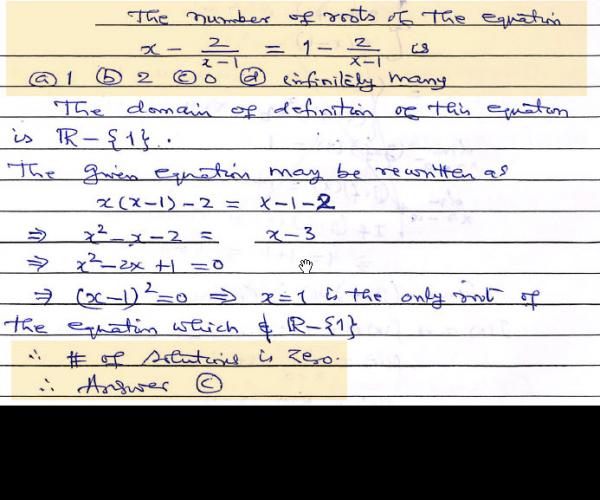 The number of roots of the equation
x - 2/(x-1) = 1 - 2/(x-1) is
(a) 1 (b) 2 (c) 0 (d) infinitely many
The domain of definition of this equation
is ℝ - {1}.
The given equation may be rewritten as
x(x-1) - 2 = x-1-2
⇒ x² - x - 2 = x-3
⇒ x² - 2x + 1 = 0
⇒ (x-1)² = 0 ⇒ x=1 is the only root of
the equation which ∉ ℝ-{1}
∴ # of solutions is zero.
∴ Answer (c)